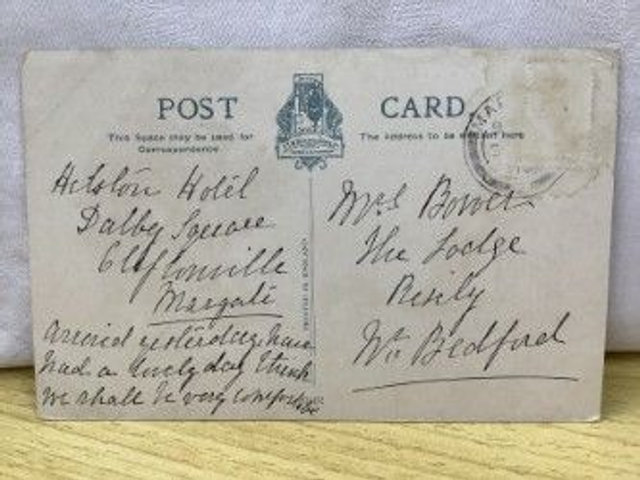 POST CARD
This Space may be used for
Correspondence
The Address to be here
PRINTED IN ENGLAND
MAR
Hotel
Dalby Square
Cliftonville
Margate
Arrived yesterday have
had a lovely day think
we shall be very comfortable
Mrs Bower
The Lodge
Risely
Nr. Bedford